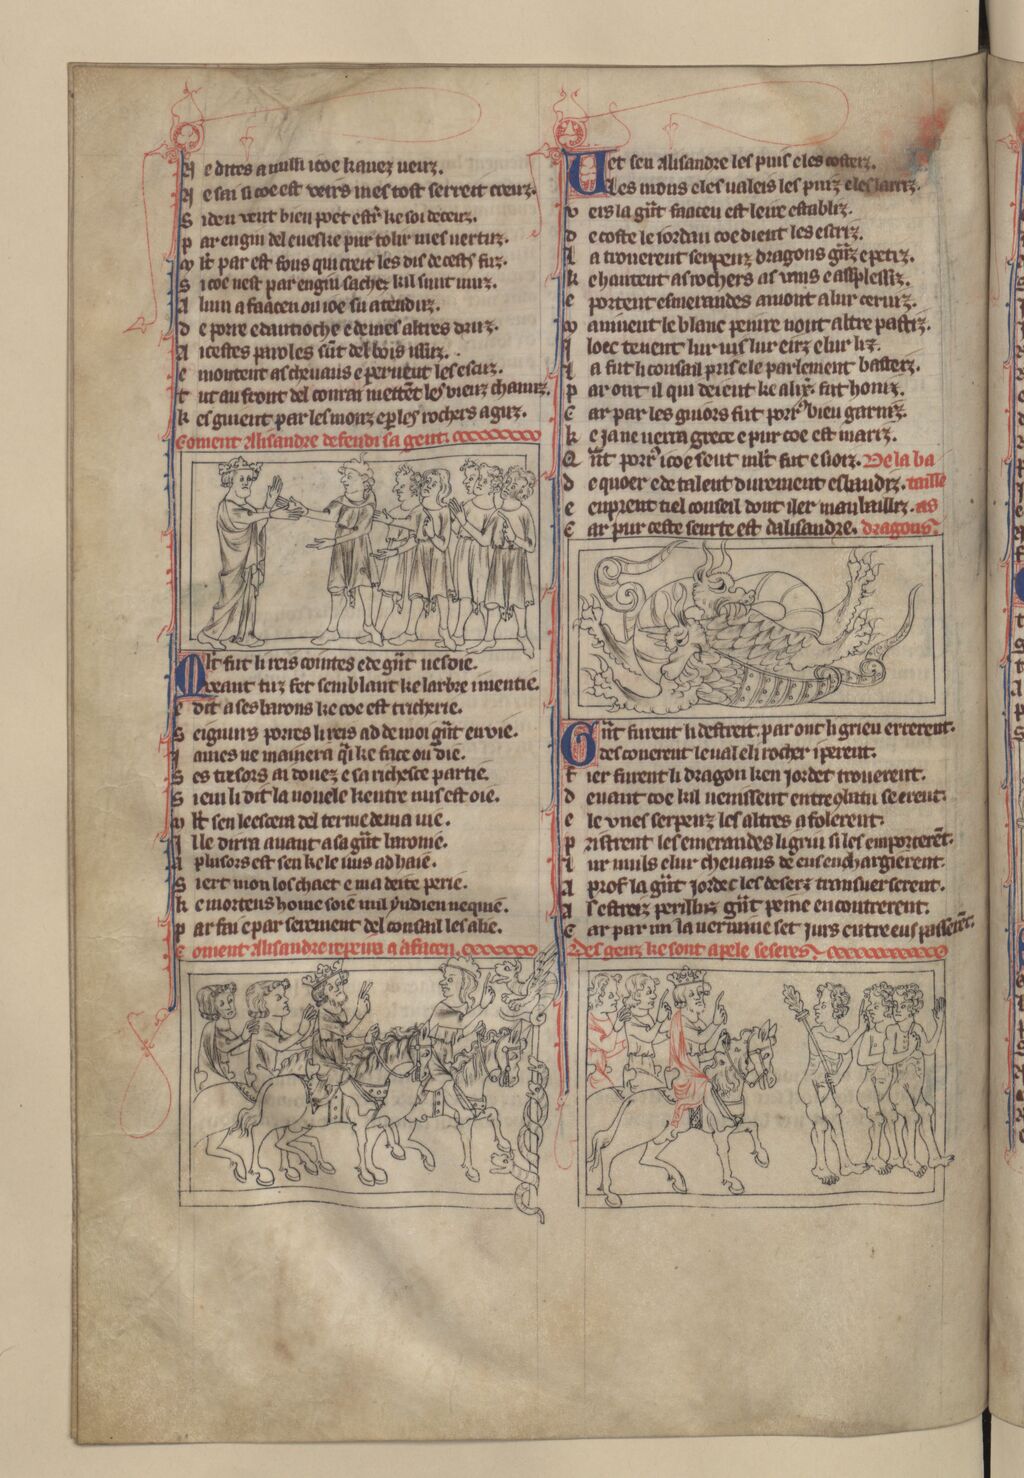 N e dites a nulli icoe k auez ueuz.
N e sai si coe est veirs mes tost serreit creuz.
S i deu veut bien poet estr ke soi deceuz.
p ar engin del eueske pur tolir mes uertuz.
M lt par est fous qui creit les dis de cests fuz.
S i coe nest par engin sachez kil sunt muz.
A lum a faacen ou ioe su atenduz.
d e porre e dantioche e de mes altres druz.
A icestes paroles sunt del bois issuz.
e montent as cheuaus e pernent les escuz.
t ut au front del conrai mettent les vieuz chanuz.
k es guient par les monz e per les rochers aguz.
Coment Alisandre defendi sa gent.
Mlt fut li reis cointes e de grant uesdie.
Oyeant tuz fet semblant ke larbre mentie.
E dit a ses barons ke coe est tricherie.
S eignurs porres li reis ad de moi grant enuie.
J ames ne mainera qui ke face ou die.
S es tresors ai donez e sa richesce partie.
S ieui li dit la nouele kentre nus est oie.
M lt sen leescera del terme de ma uie.
J l le dirra auant a sa grant baronie.
A plusors est sen ke le nus ad haie.
S i ert mon los chaet e ma deite perie.
k e morteus home soie nul yndien ne quie.
p ar fai e par serement del consail les alie.
Coment Alisandre repeira a a faacen.
Uet sen Alisandre les puis e les costerz.
Les mons e les ualeis les puiz e les lariz.
v ers la grant faacen est leue establiz.
d e coste le iordan coe dient les escriz.
L a trouerent serpenz dragons granz e petiz.
k e hantent as rochers as vaus e as plessiz.
e portent esmerandes amont a lur ceruiz.
M amiuent le blanc peiure nont altre pastiz.
J loec teuent lur uis lur eirz e lur liz.
L a fut li consail pris e le parlement bastiz.
p ar ont il qui deient ke alix. fut honiz.
C ar par les gniors fut porr bien garniz.
k e ia ne uerra grece e pur coe est mariz.
Q ant porr icoe sout mlt fut esioiz. De la ba
d e quoer e de talent durement eslaudiz. taille
e enprent tiel conseil dont iler maubailliz. as
C ar pur ceste seurte est dalisandre. dragons
Grant furent li destreit par ont li grieu errerent.
des couerent le ual e li rocher i perent.
F ier furent li dragon ken iordet trouerent.
d euant coe kil uenissent entre
e le vnes serpenz les altres afolerent.
p ristrent les esmerandes li griu si les emporterent.
L ur muls e lur cheuaus de eus enchargierent.
A prof la grant iordec les deserz transuerserent.
A s estreiz perilluz grant peine encoutrerent.
C ar par un la uermine set iurs entre eus passerent.
Des genz ke sont apele seseres